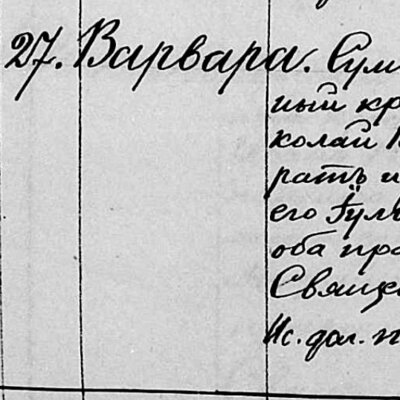 27. Варвара. Сум
ный кр
колай
ратъ и
его
оба пра
Свяще
Ис. дол. п